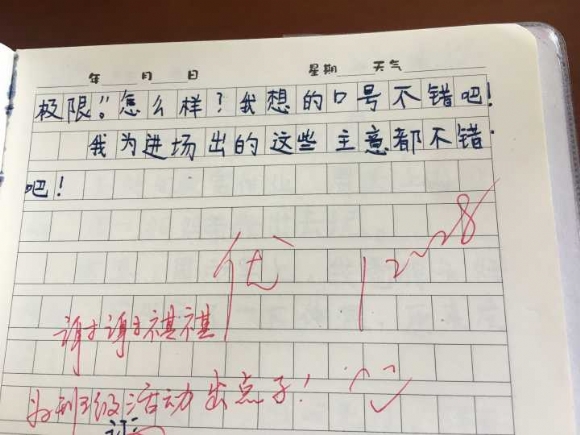 年 月 日 星期 天气
极限。”怎么样？我想的口号不错吧！
我为进场出的这些主意都不错
吧！
优 12~28
谢谢祺祺
为班级活动出点子！